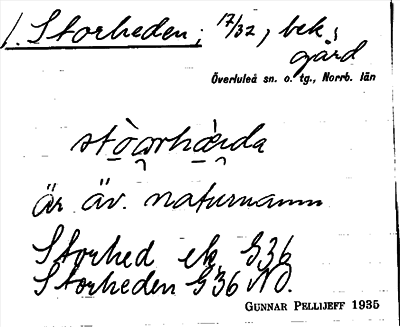 1. Storheden; 17/32, bek.,
gård
Överluleå sn. o. tg., Norrb. län
är äv. naturnamn
Storhed ek. G36
Storheden G36 NO.
GUNNAR PELLIJEFF 1935